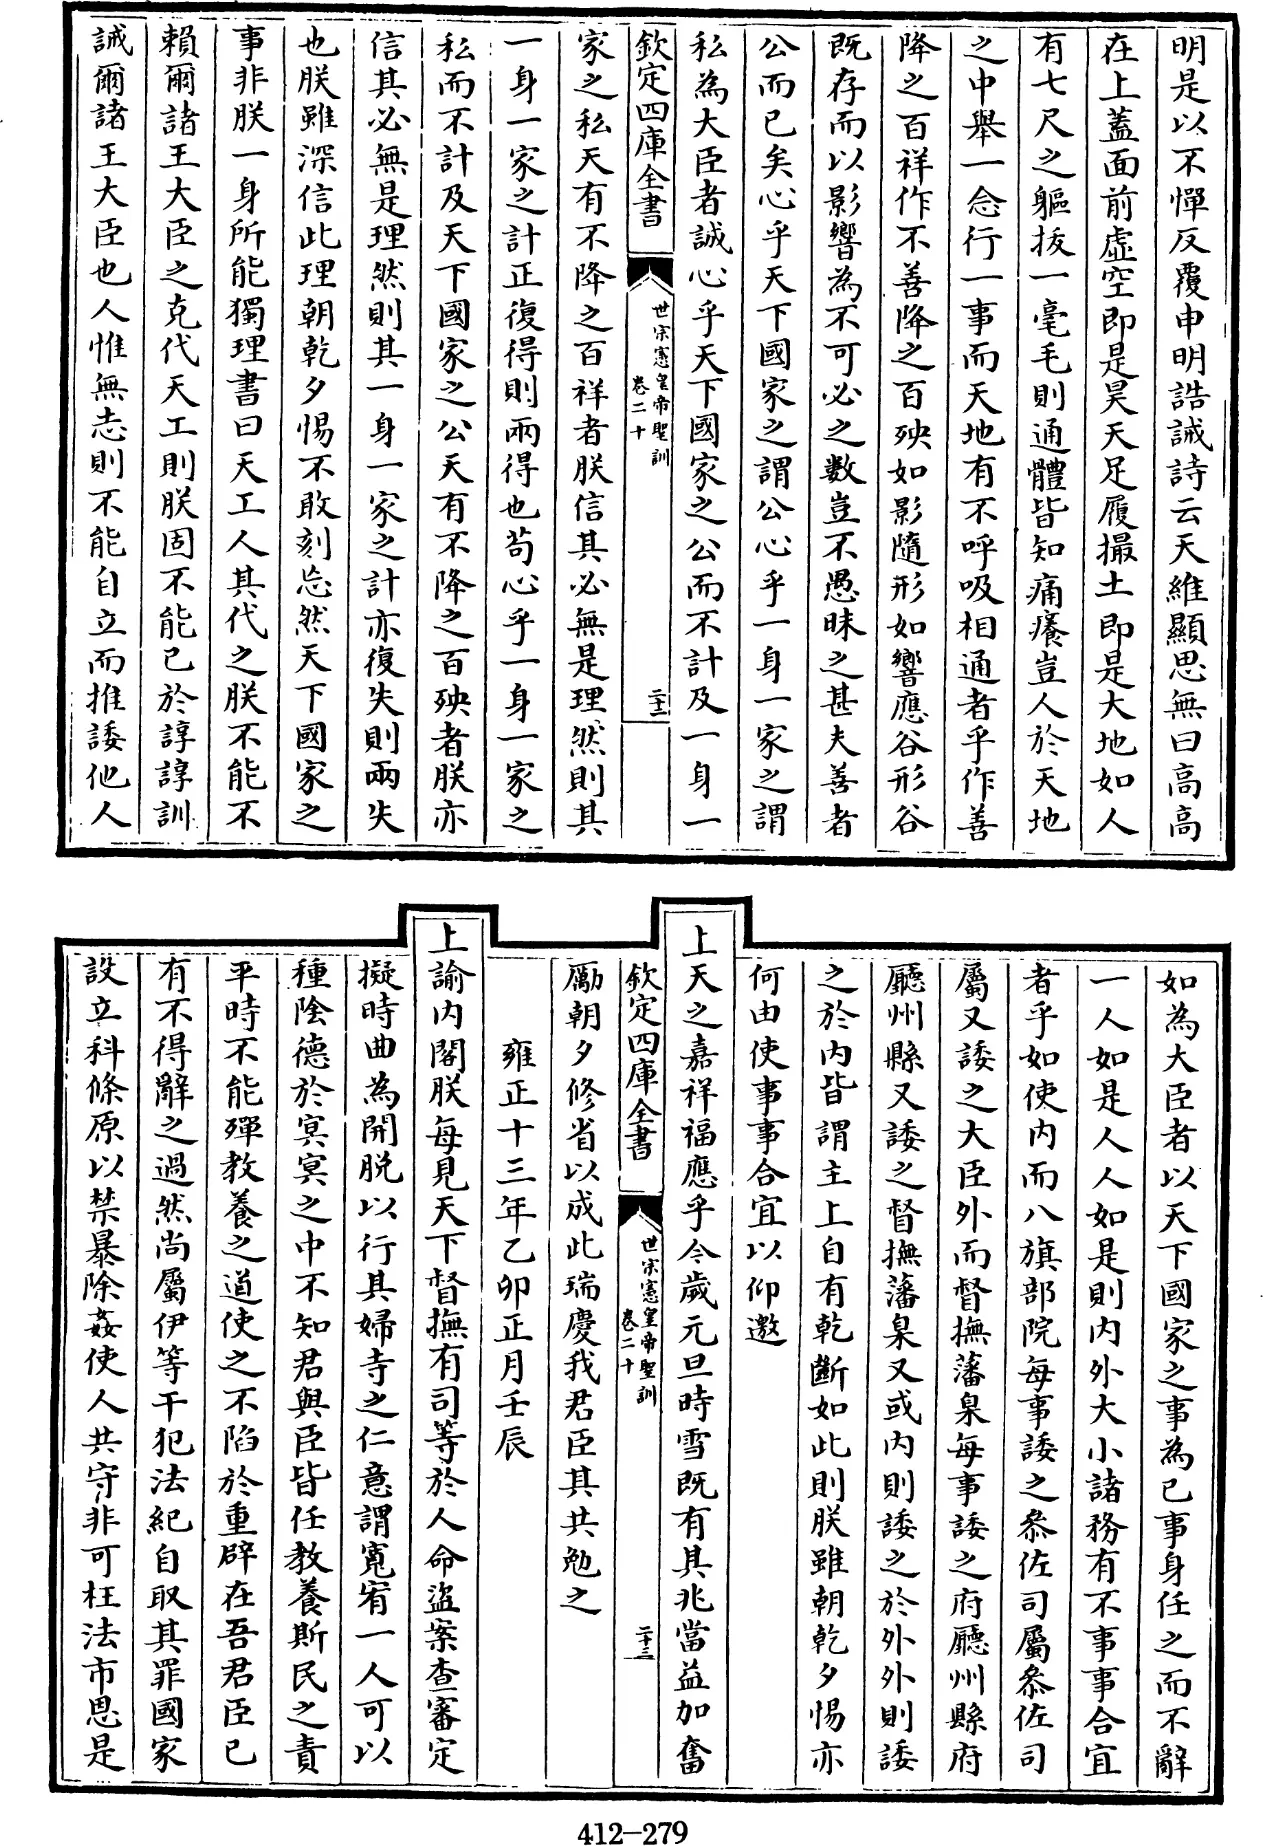 明是以不憚反覆申明誥誡詩云天維顯思無曰高高
在上蓋面前虛空即是昊天足履撮土即是大地如人
有七尺之軀拔一毫毛則通體皆知痛癢豈人於天地
之中舉一念行一事而天地有不呼吸相通者乎作善
降之百祥作不善降之百殃如影隨形如響應谷形谷
既存而以影響為不可必之數豈不愚昧之甚夫善者
公而已矣心乎天下國家之謂公心乎一身一家之謂
私為大臣者誠心乎天下國家之公而不計及一身一
欽定四庫全書
世宗憲皇帝聖訓
卷二十
二十二
家之私天有不降之百祥者朕信其必無是理然則其
一身一家之計正復得則兩得也苟心乎一身一家之
私而不計及天下國家之公天有不降之百殃者朕亦
信其必無是理然則其一身一家之計亦復失則兩失
也朕雖深信此理朝乾夕惕不敢刻忘然天下國家之
事非朕一身所能獨理書曰天工人其代之朕不能不
賴爾諸王大臣之克代天工則朕固不能已於諄諄訓
誡爾諸王大臣也人惟無志則不能自立而推諉他人
如為大臣者以天下國家之事為已事身任之而不辭
一人如是人人如是則內外大小諸務有不事事合宜
者乎如使內而八旗部院每事諉之叅佐司屬叅佐司
屬又諉之大臣外而督撫藩臬每事諉之府廳州縣府
廳州縣又諉之督撫藩臬又或內則諉之於外外則諉
之於內皆謂主上自有乾斷如此則朕雖朝乾夕惕亦
何由使事事合宜以仰邀
上天之嘉祥福應乎今歲元旦時雪既有其兆當益加奮
欽定四庫全書
世宗憲皇帝聖訓
卷二十
二十三
勵朝夕修省以成此瑞慶我君臣其共勉之
雍正十三年乙卯正月壬辰
上諭內閣朕每見天下督撫有司等於人命盜案查審定
擬時曲為開脫以行其婦寺之仁意謂寬宥一人可以
種陰德於冥冥之中不知君與臣皆任教養斯民之責
平時不能殫教養之道使之不陷於重辟在吾君臣已
有不得辭之過然尚屬伊等干犯法紀自取其罪國家
設立科條原以禁暴除姦使人共守非可枉法市恩是
412-279